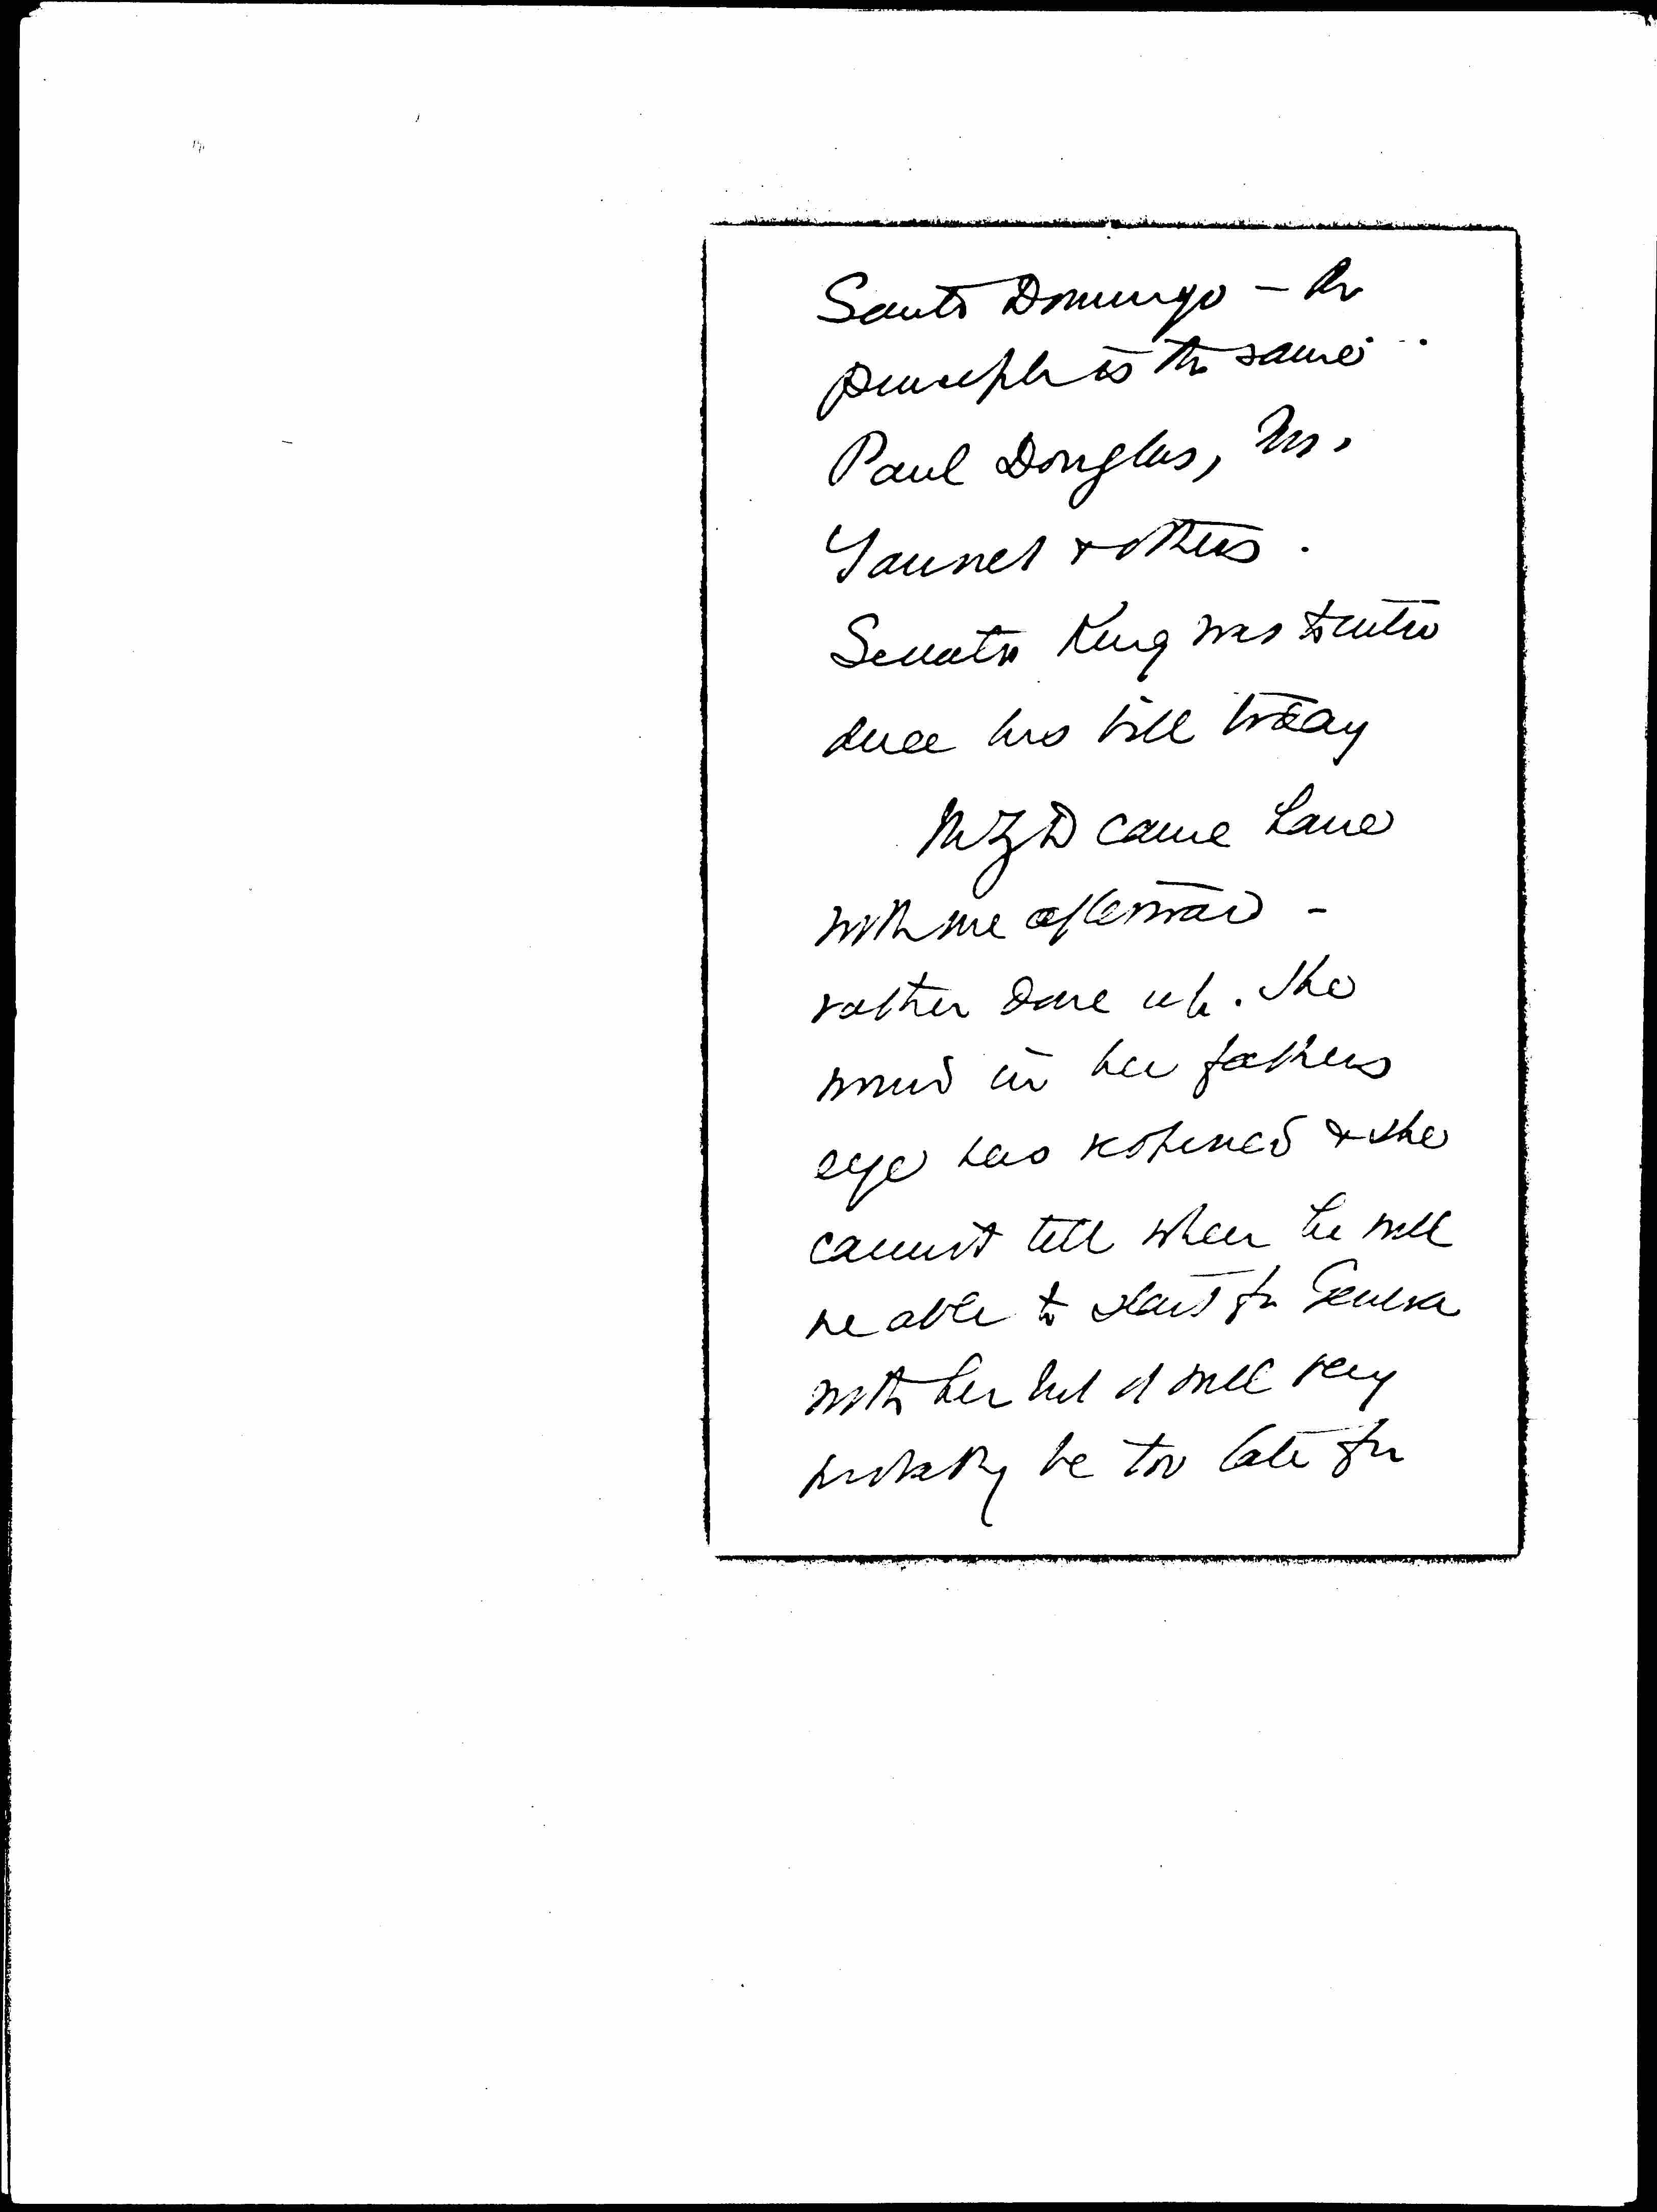 Santo Domingo – the
principle is the same.
Paul Douglas, Mr.
& others.
Senator King was to intro
duce his bill today
MZD came home
with me afterward –
rather done up. The
wound in her fathers
eye has reopened & she
cannot tell when he will
be able to start for Geneva
with her but it will very
probably be too late for